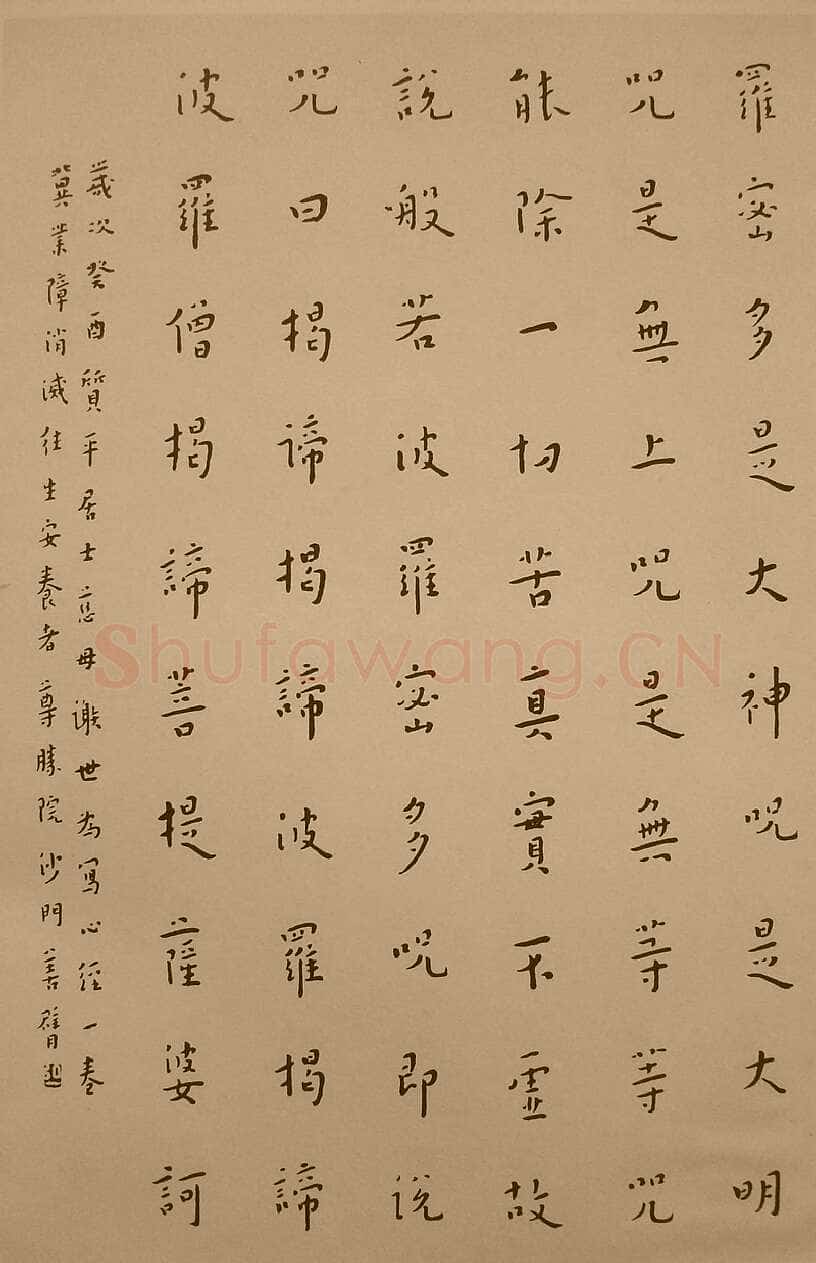 羅密多是大神呪是大明
呪是無上呪是無等等呪
能除一切苦真實不虛故
說般若波羅密多呪即說
呪曰揭諦揭諦波羅揭諦
波羅僧揭諦菩提薩婆訶
歲次癸酉質平居士慈母謝世為寫心經一卷
冀業障消滅往生安養者尊勝院沙門善臂
Shufawang.CN